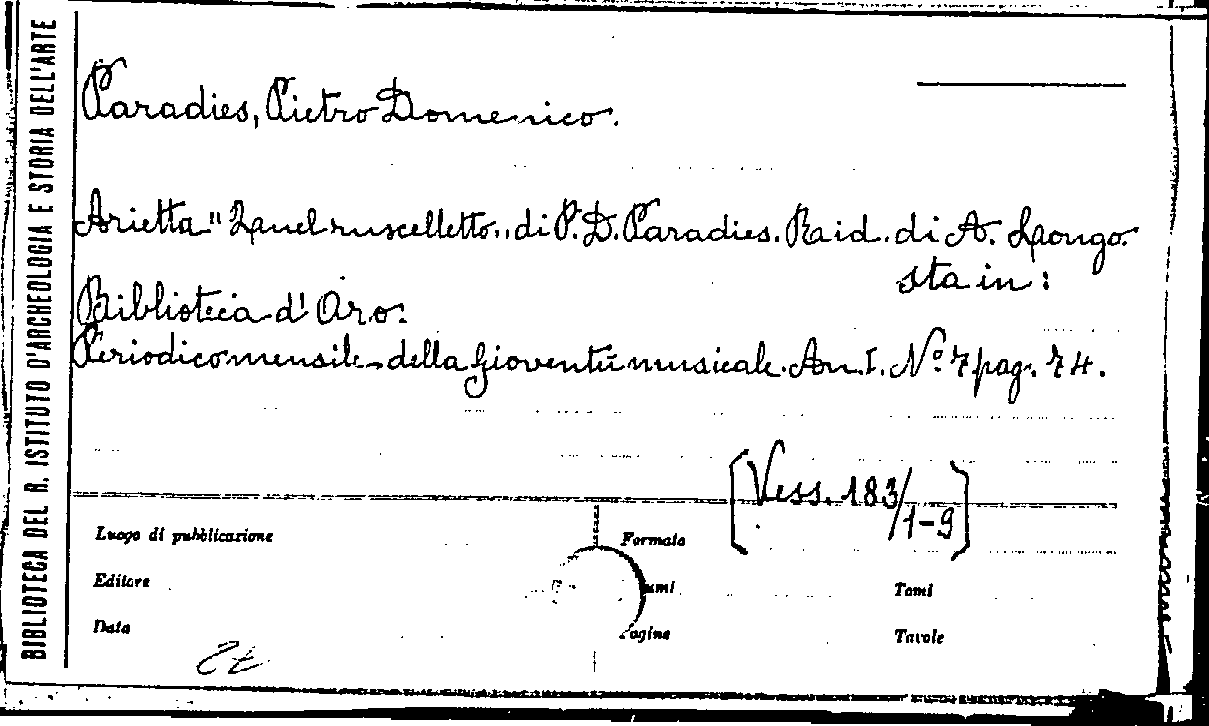 BIBLIOTECA DEL R. ISTITUTO D'ARCHEOLOGIA E STORIA DELL'ARTE
Paradies, Pietro Domenico.
Arietta "Quel ruscelletto" di P. D. Paradies. Raid. di A. Longo.
sta in:
Biblioteca d'Oro:
Periodico mensile della gioventù musicale. An. I. Nº 7 pag. 74.
[Vess. 183/1-9]
Luogo di pubblicazione
Formato
Editore
Tomi
Data
Pagine
Tavole